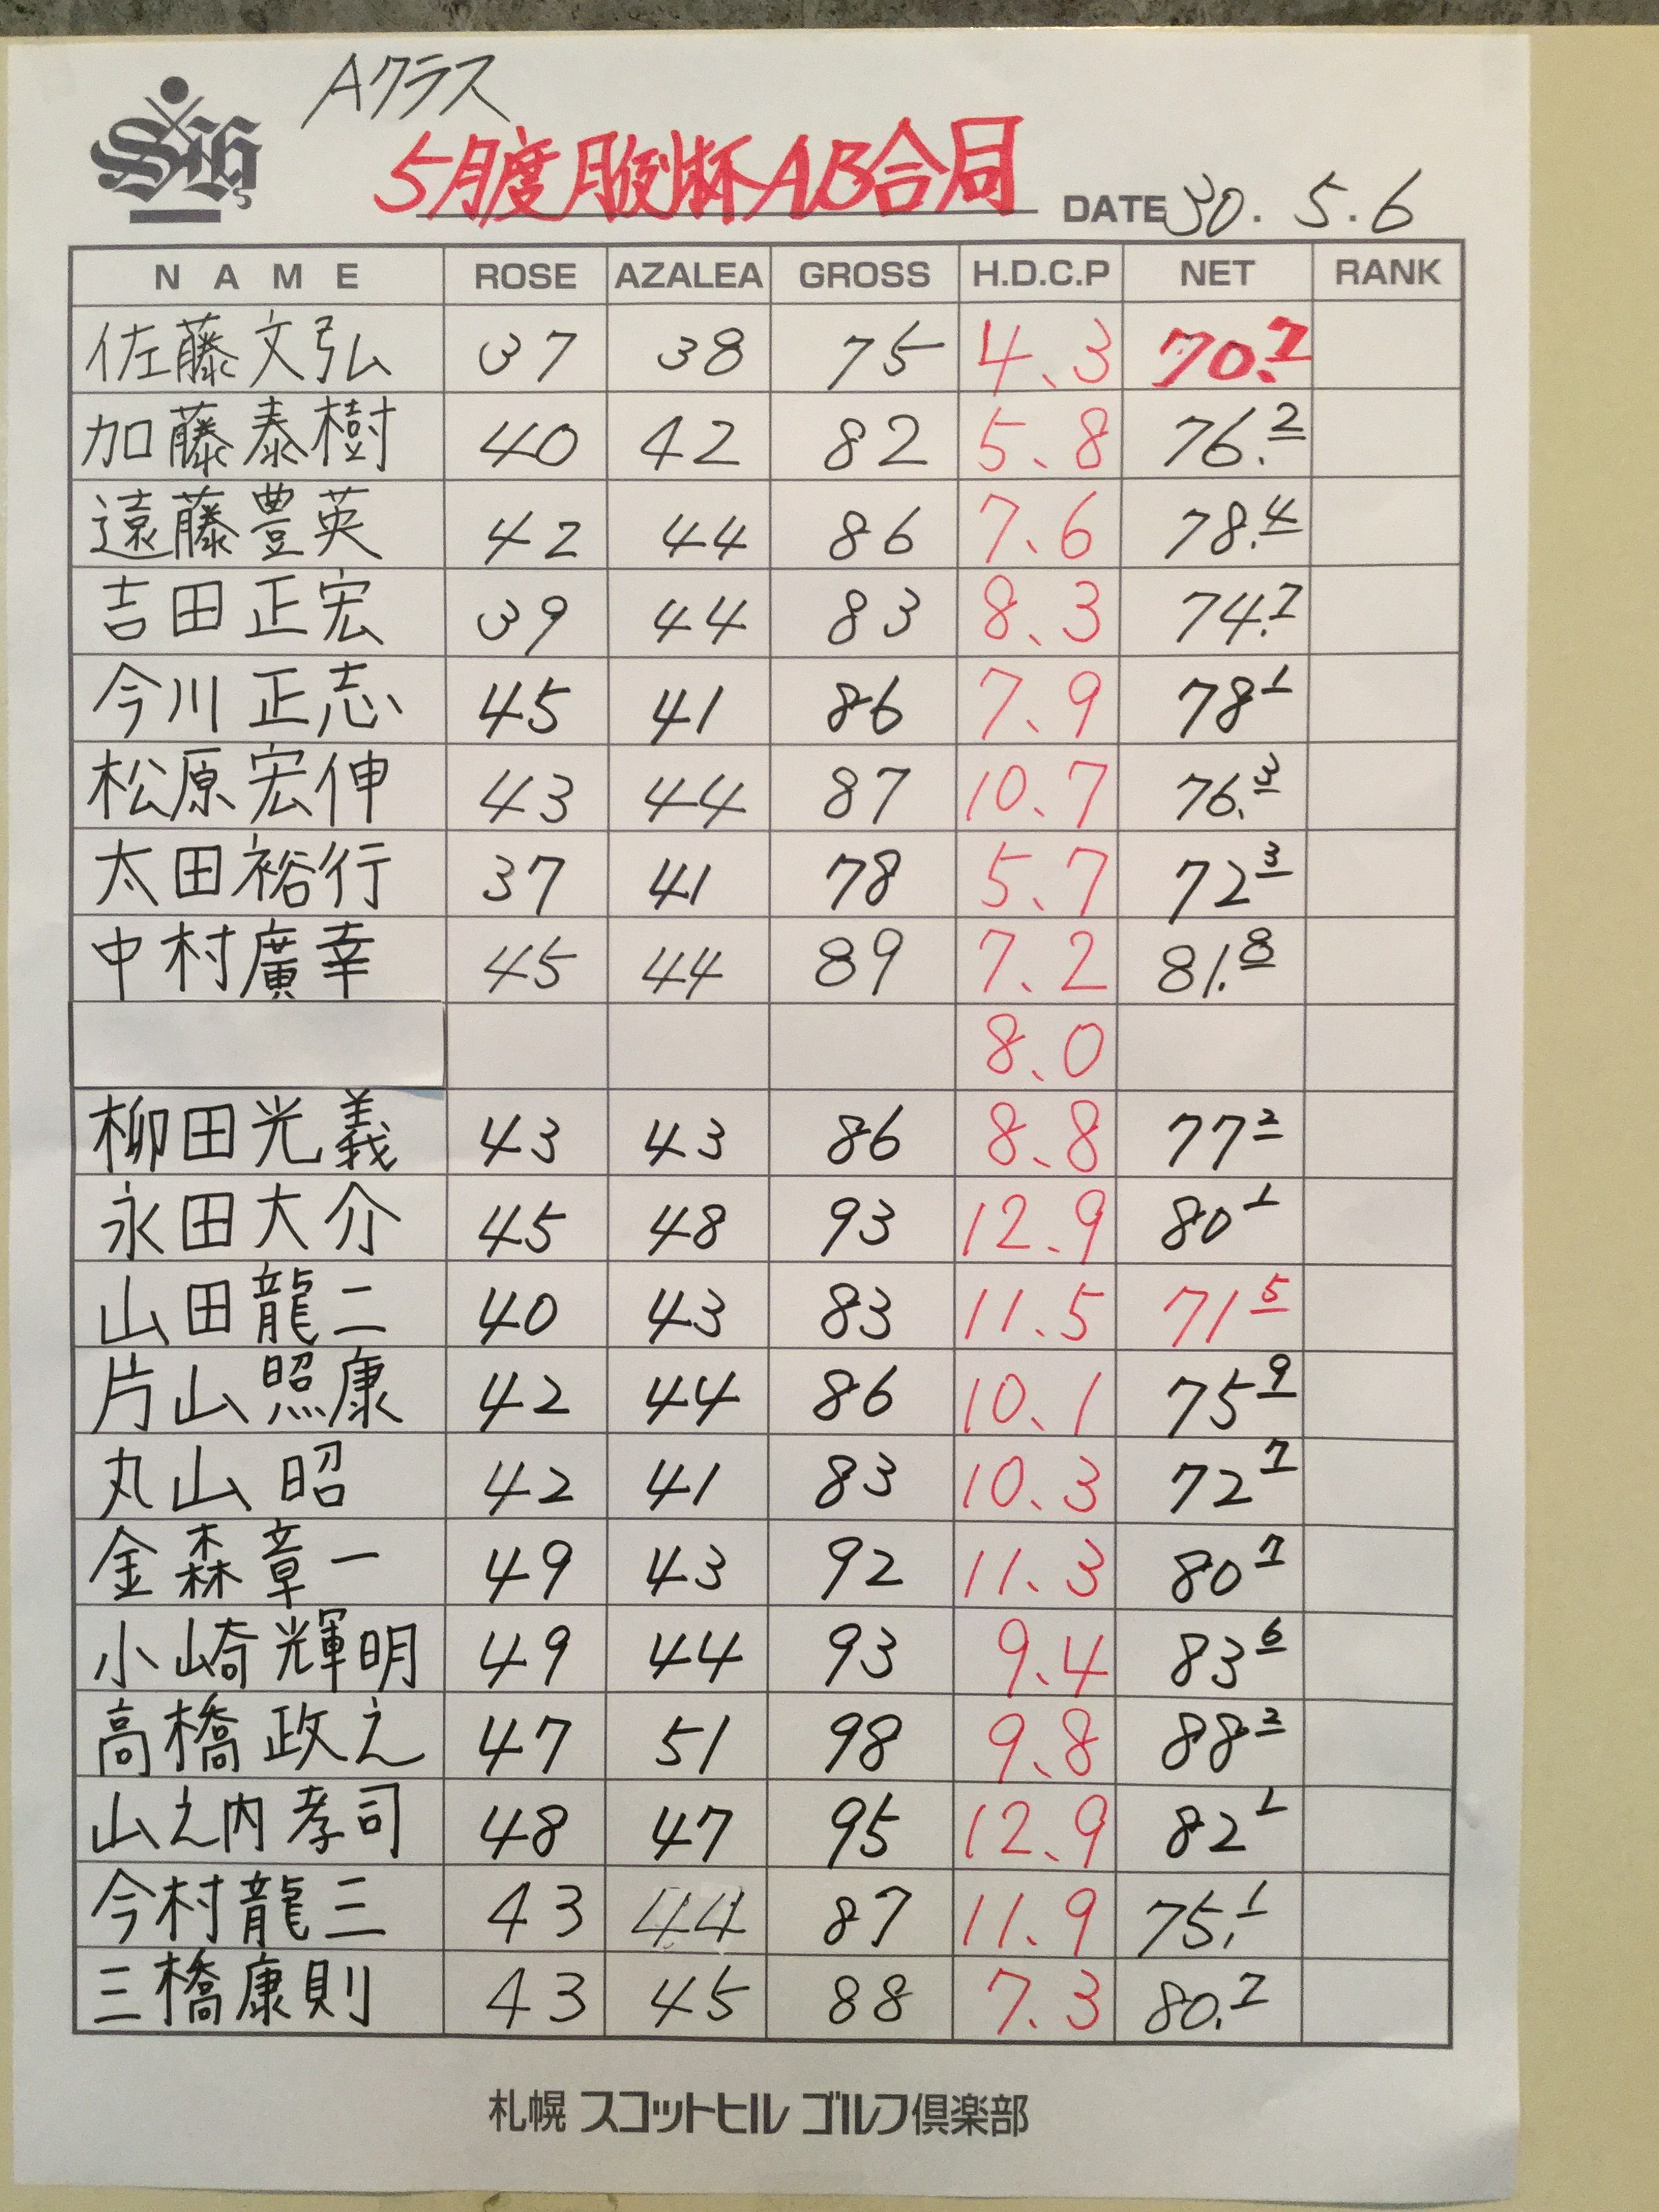 Aクラス
5月度月例杯AB合同 DATE 30.5.6
NAME ROSE AZALEA GROSS H.D.C.P NET RANK
佐藤文弘 37 38 75 4.3 70.7
加藤泰樹 40 42 82 5.8 76.2
遠藤豊英 42 44 86 7.6 78.4
吉田正宏 39 44 83 8.3 74.7
今川正志 45 41 86 7.9 78 1
松原宏伸 43 44 87 10.7 76.3
太田裕行 37 41 78 5.7 72 3
中村廣幸 45 44 89 7.2 81.8
8.0
柳田光義 43 43 86 8.8 77 2
永田大介 45 48 93 12.9 80 1
山田龍二 40 43 83 11.5 71 5
片山照康 42 44 86 10.1 75 9
丸山昭 42 41 83 10.3 72 7
金森章一 49 43 92 11.3 80 7
小崎輝明 49 44 93 9.4 83 6
高橋政之 47 51 98 9.8 88 2
山之内孝司 48 47 95 12.9 82 1
今村龍三 43 44 87 11.9 75.1
三橋康則 43 45 88 7.3 80.7
札幌 スコットヒル ゴルフ倶楽部